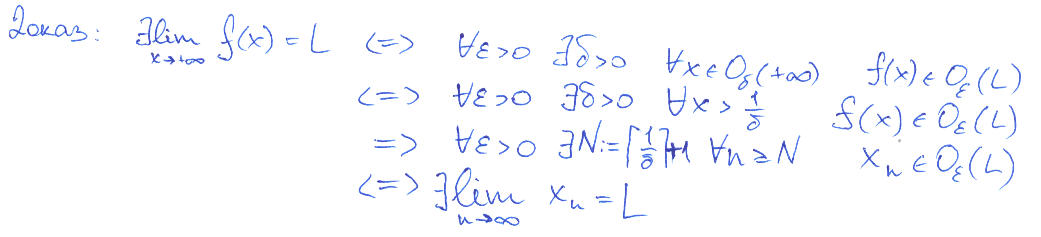 Доказ: ∃lim f(x) = L <=> ∀ε>0 ∃δ>0 ∀x∈O_δ(+∞) f(x)∈O_ε(L)
x→+∞
<=> ∀ε>0 ∃δ>0 ∀x > 1/δ f(x)∈O_ε(L)
=> ∀ε>0 ∃N:=⌈1/δ⌉+1 ∀n≥N x_n∈O_ε(L)
<=> ∃lim x_n = L
n→∞